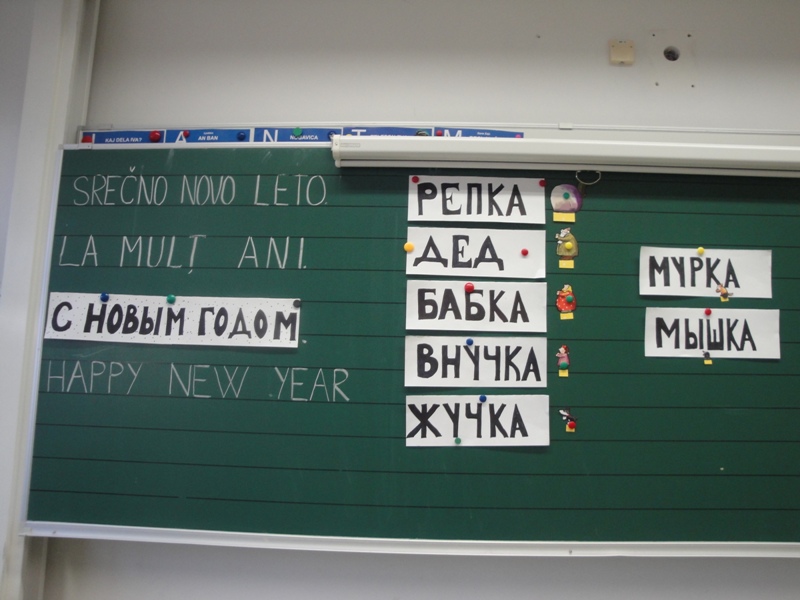 KAJ DELA IVA?
AN BAN
A N T M
SREČNO NOVO LETO.
LA MULȚI ANI.
С НОВЫМ ГОДОМ
HAPPY NEW YEAR
РЕПКА
ДЕД
БАБКА
ВНУЧКА
ЖУЧКА
МУРКА
МЫШКА